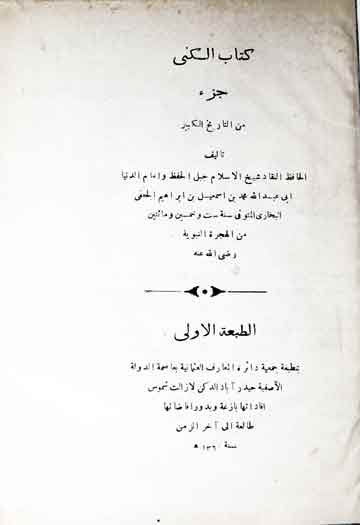 كتاب الكنى
جزء
من التاريخ الكبير
تاليف
الحافظ النقاد شيخ الاسلام جبل الحفظ وامام الدنيا
ابى عبد الله محمد بن اسمعيل بن ابراهيم الجعفى
البخارى المتوفى سنة ست وخمسين ومائتين
من الهجرة النبوية
رضى الله عنه
الطبعة الاولى
بمطبعة جمعية دائرة المعارف العثمانية بعاصمة الدولة
الآصفية حيدرآباد الدكن لازالت شموس
افاداتها بازغة وبدور افاضاتها
طالعة الى آخر الزمن
سنة ١٣٦٠ ھ